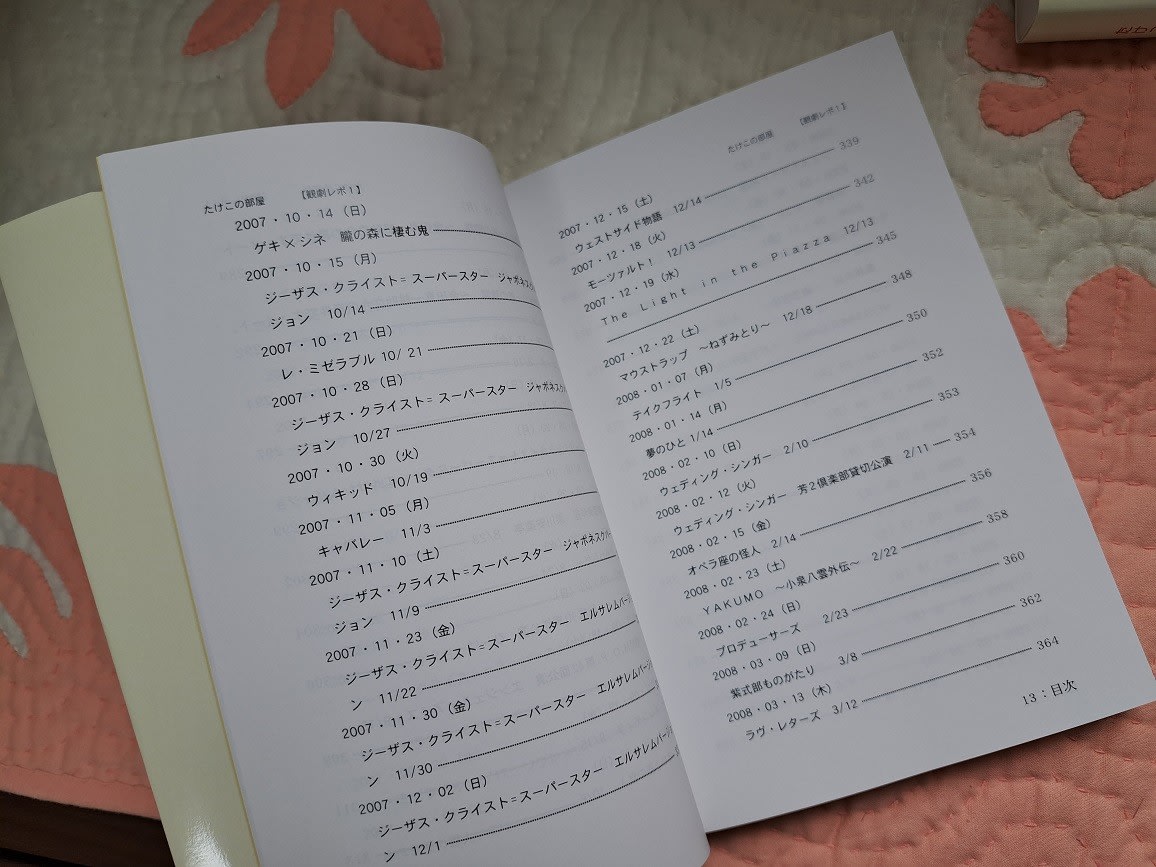 たけこの部屋　【観劇レポ１】
2007・10・14（日）
ゲキ×シネ　朧の森に棲む鬼
2007・10・15（月）
ジーザス・クライスト=スーパースター　ジャポネスク
ジョン　10/14
2007・10・21（日）
レ・ミゼラブル 10/ 21
2007・10・28（日）
ジーザス・クライスト=スーパースター　ジャポネスク
ジョン　10/27
2007・10・30（火）
ウィキッド　10/19
2007・11・05（月）
キャバレー　11/3
2007・11・10（土）
ジーザス・クライスト=スーパースター　ジャポネスク
ジョン　11/9
2007・11・23（金）
ジーザス・クライスト=スーパースター　エルサレムバージ
ン　11/22
2007・11・30（金）
ジーザス・クライスト=スーパースター　エルサレムバージ
ン　11/30
2007・12・02（日）
ジーザス・クライスト=スーパースター　エルサレムバー
ン　12/1
たけこの部屋　【観劇レポ１】
339
2007・12・15（土）
ウェストサイド物語　12/14 342
2007・12・18（火）
モーツァルト！　12/13 345
2007・12・19（水）
The Light in the Piazza　12/13
348
2007・12・22（土）
マウストラップ　～ねずみとり～　12/18 350
2008・01・07（月）
テイクフライト　1/5 352
2008・01・14（月）
夢のひと 1/14 353
2008・02・10（日）
ウェディング・シンガー　2/10 354
2008・02・12（火）
ウェディング・シンガー　芳２倶楽部貸切公演　2/11 356
2008・02・15（金）
オペラ座の怪人　2/14 358
2008・02・23（土）
ＹＡＫＵＭＯ　～小泉八雲外伝～　2/22 360
2008・02・24（日）
プロデューサーズ　2/23 362
2008・03・09（日）
紫式部ものがたり　3/8 364
2008・03・13（木）
ラヴ・レターズ　3/12
13：目次